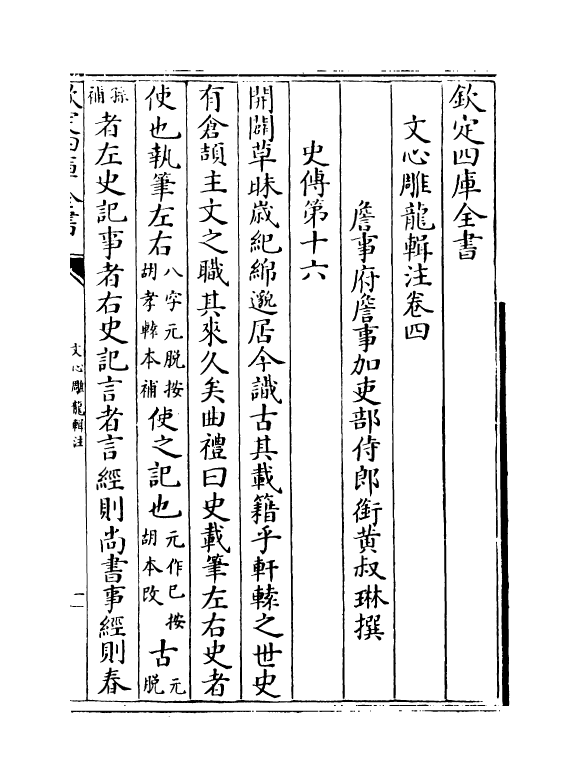 欽定四庫全書
文心雕龍輯注卷四
詹事府詹事加吏部侍郎銜黄叔琳撰
史傳第十六
開闢草昧歲紀綿邈居今識古其載籍乎軒轅之世史
有倉頡主文之職其來久矣曲禮曰史載筆左右史者
使也執筆左右八字元脱按胡孝轅本補使之記也元作已按胡本改古元脱
孫補者左史記事者右史記言者言經則尚書事經則春
欽定四庫全書
文心雕龍輯注
一